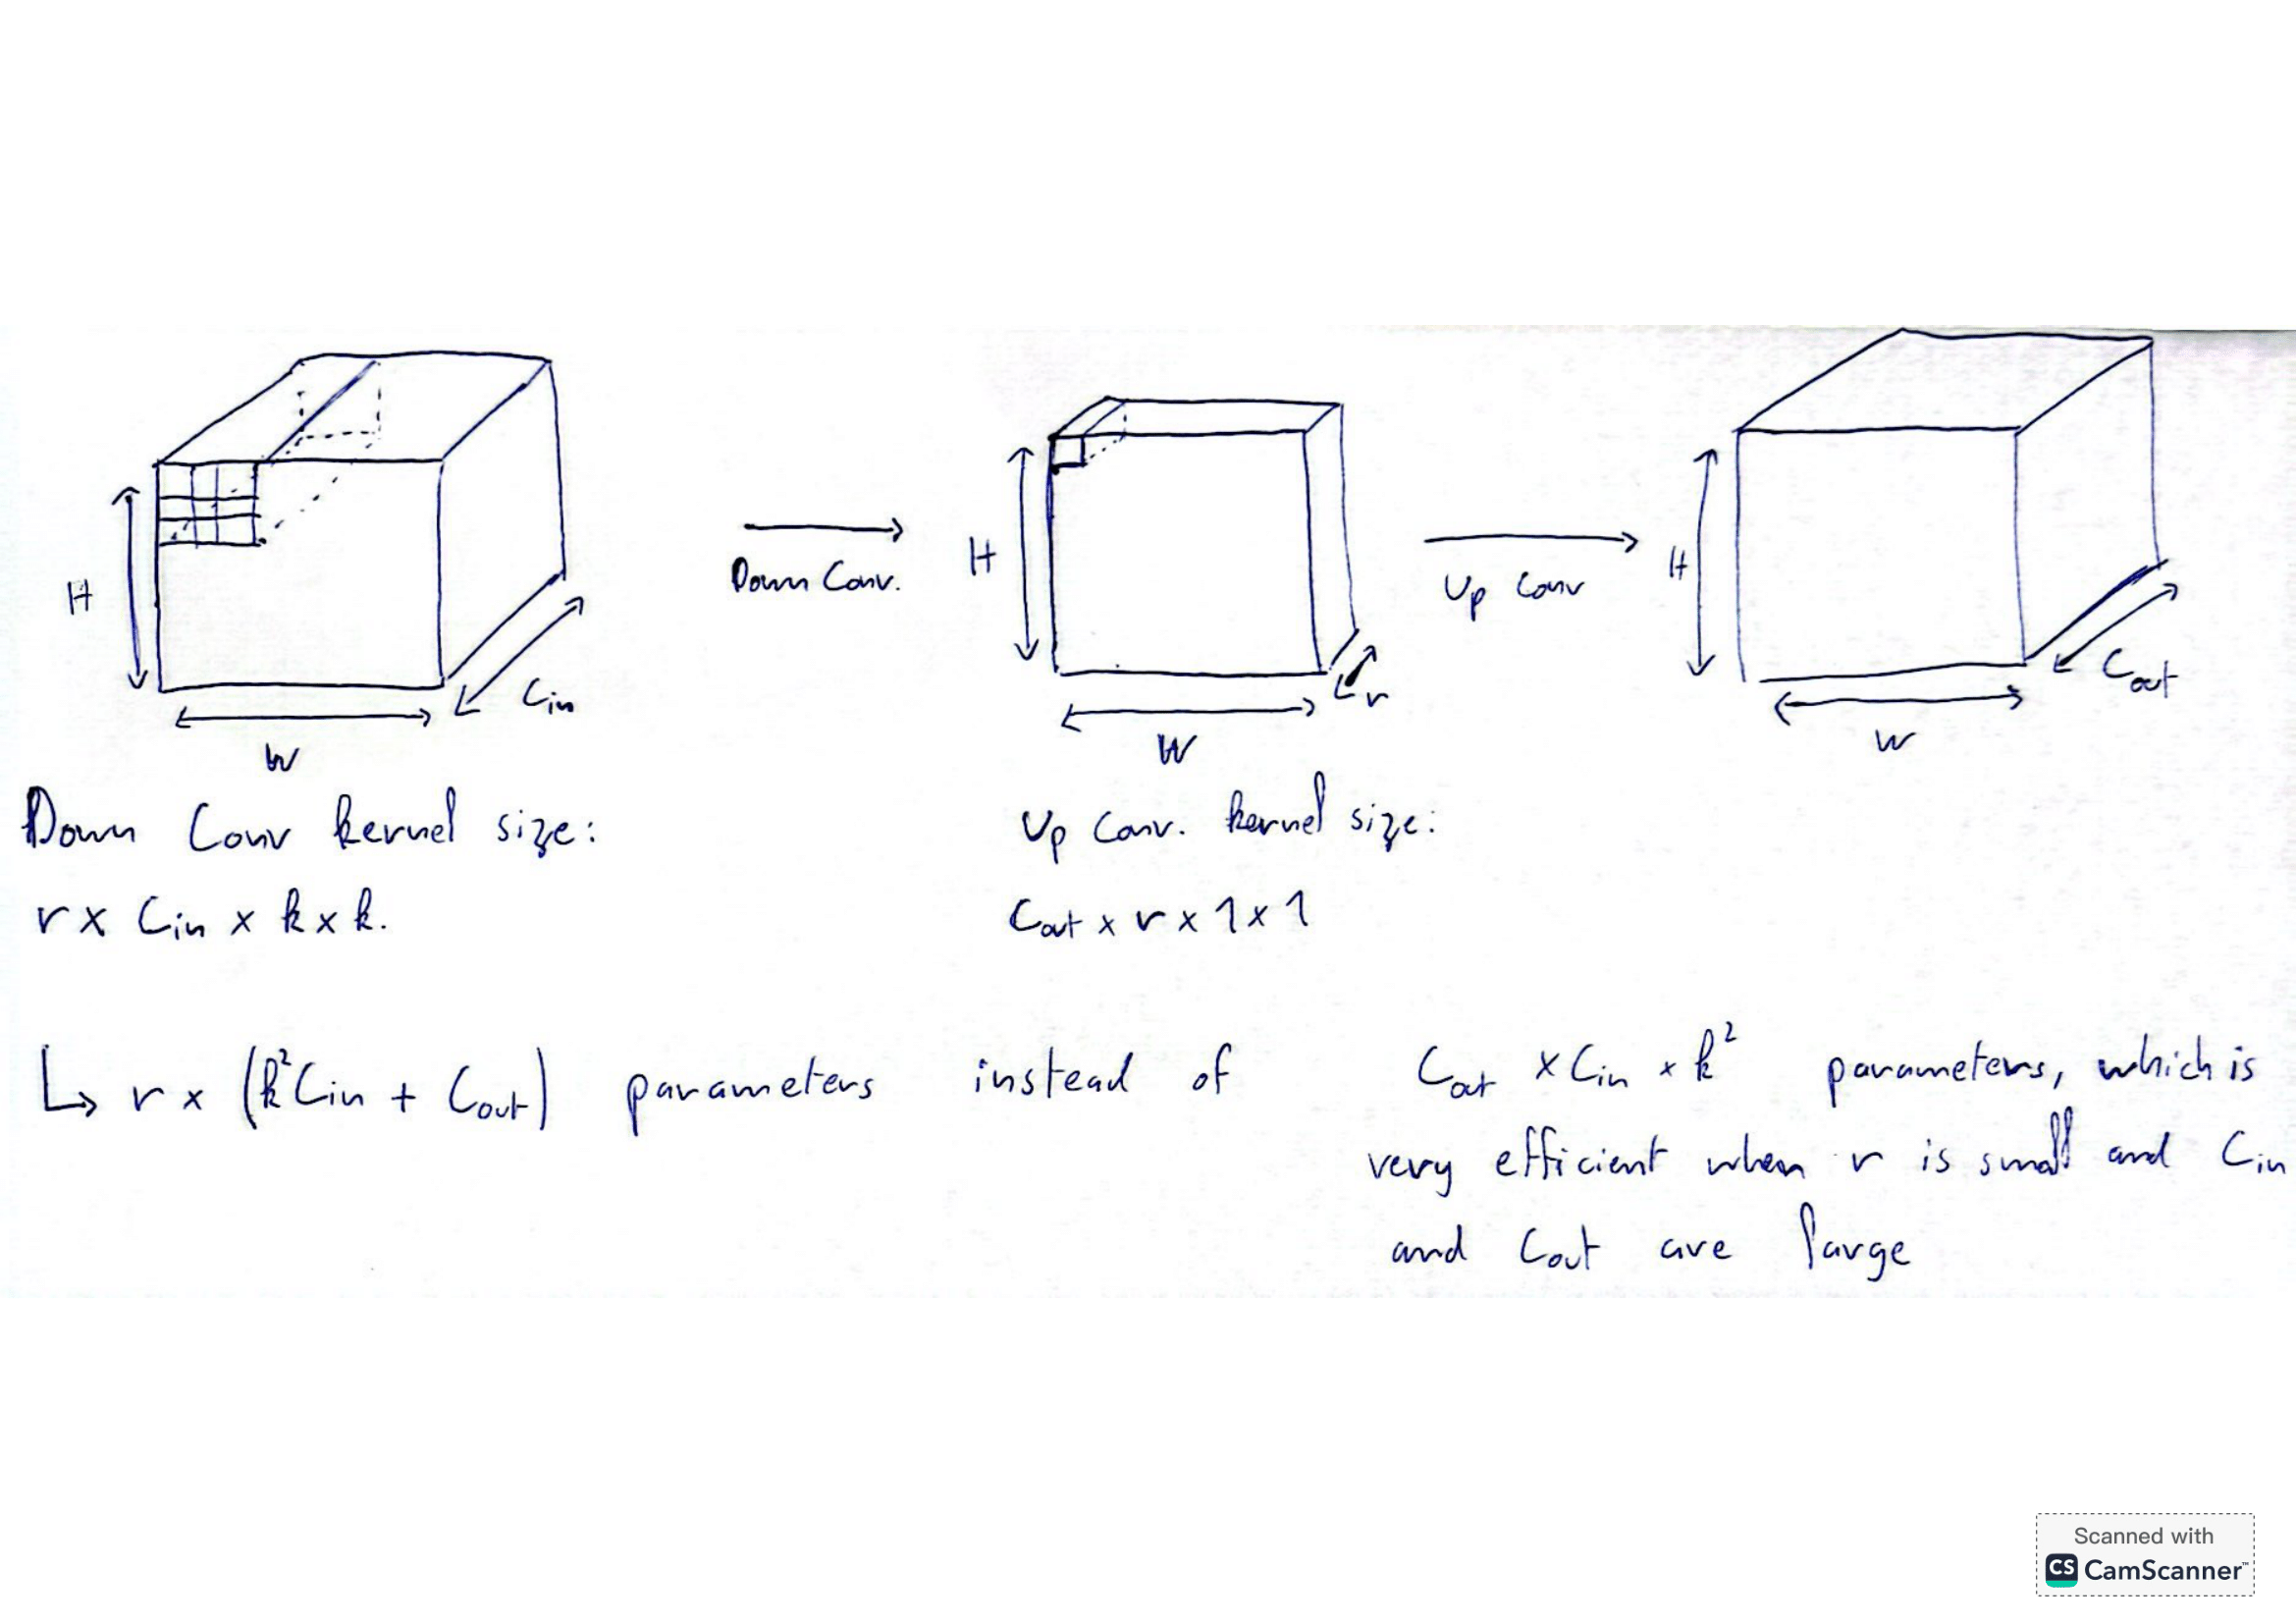 H
W
Cin
Down Conv.
H
W
r
Up Conv
H
W
Cout
Down Conv kernel size:
r x Cin x k x k.
Up Conv. kernel size:
Cout x r x 1 x 1
↳ r x (k²Cin + Cout) parameters instead of Cout x Cin x k² parameters, which is
very efficient when r is small and Cin
and Cout are large
Scanned with
CS CamScanner™